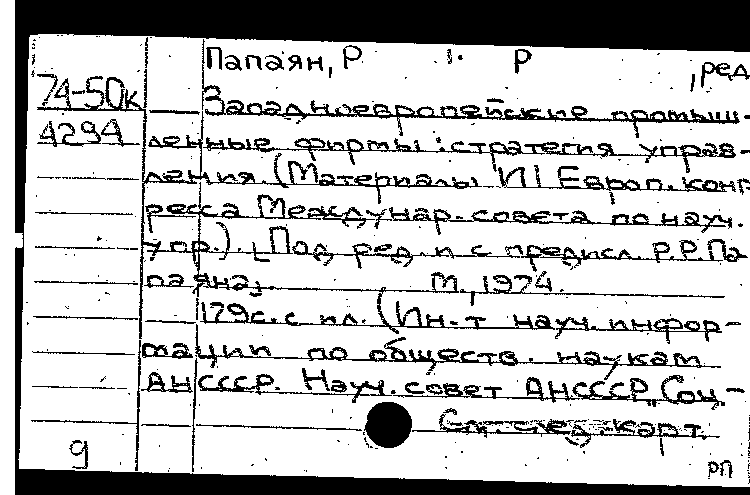 Папаян, Р. Р., ред.
74-50к
Западноевропейские промыш-
4294
ленные фирмы: стратегия управ-
ления. (Материалы VI Европ. конг
ресса Междунар. совета по науч.
упр.). [Под ред. и с предисл. Р.Р. Па
паяна]. М., 1974.
179с. с ил. (Ин-т науч. инфор-
мации по обществ. наукам
АН СССР. Науч. совет АН СССР „Соц.-
См. след. карт.
9
рп